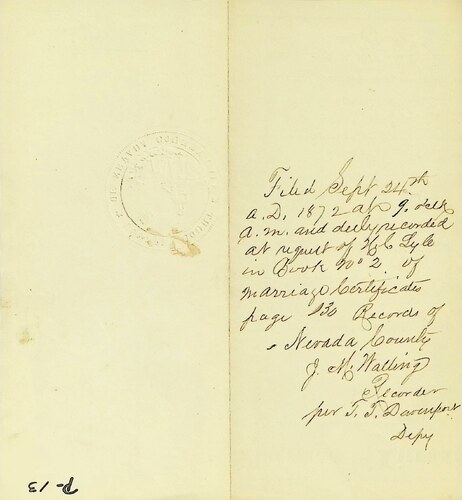 Filed Sept 24th
A.D. 1872 at 9. oclk
A.M. and duly recorded
at request of H C Lyle
in Book No 2 of
Marriage Certificates
page 130 Records of
Nevada County
J. M. Walling
Recorder
per T. T. Davenport
Depy
P-13